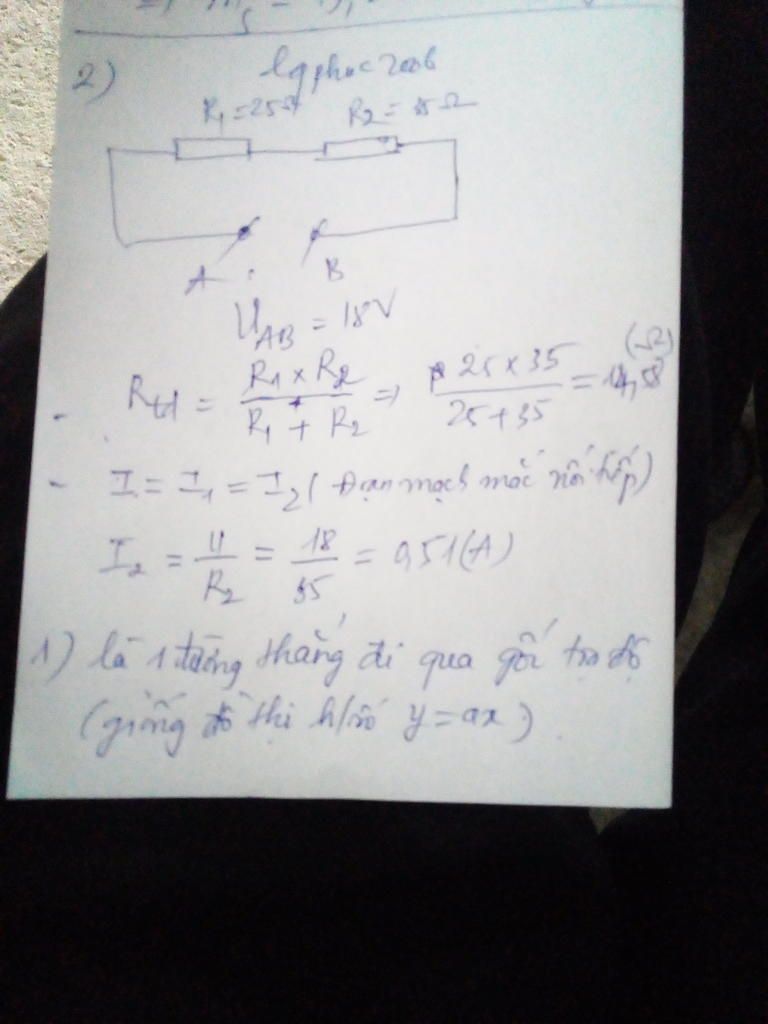 2) lqphuc2006
R₁=25Ω R₂=35Ω
A B
U_AB = 18V
- Rtđ = (R₁ × R₂)/(R₁ + R₂) => (25 × 35)/(25+35) = 14,58 (Ω)
- I = I₁ = I₂ ( Đoạn mạch mắc nối tiếp)
I₂ = U/R₂ = 18/35 = 0,51(A)
1) là 1 đường thẳng đi qua gốc tọa độ
(giống đồ thị h/số y=ax).